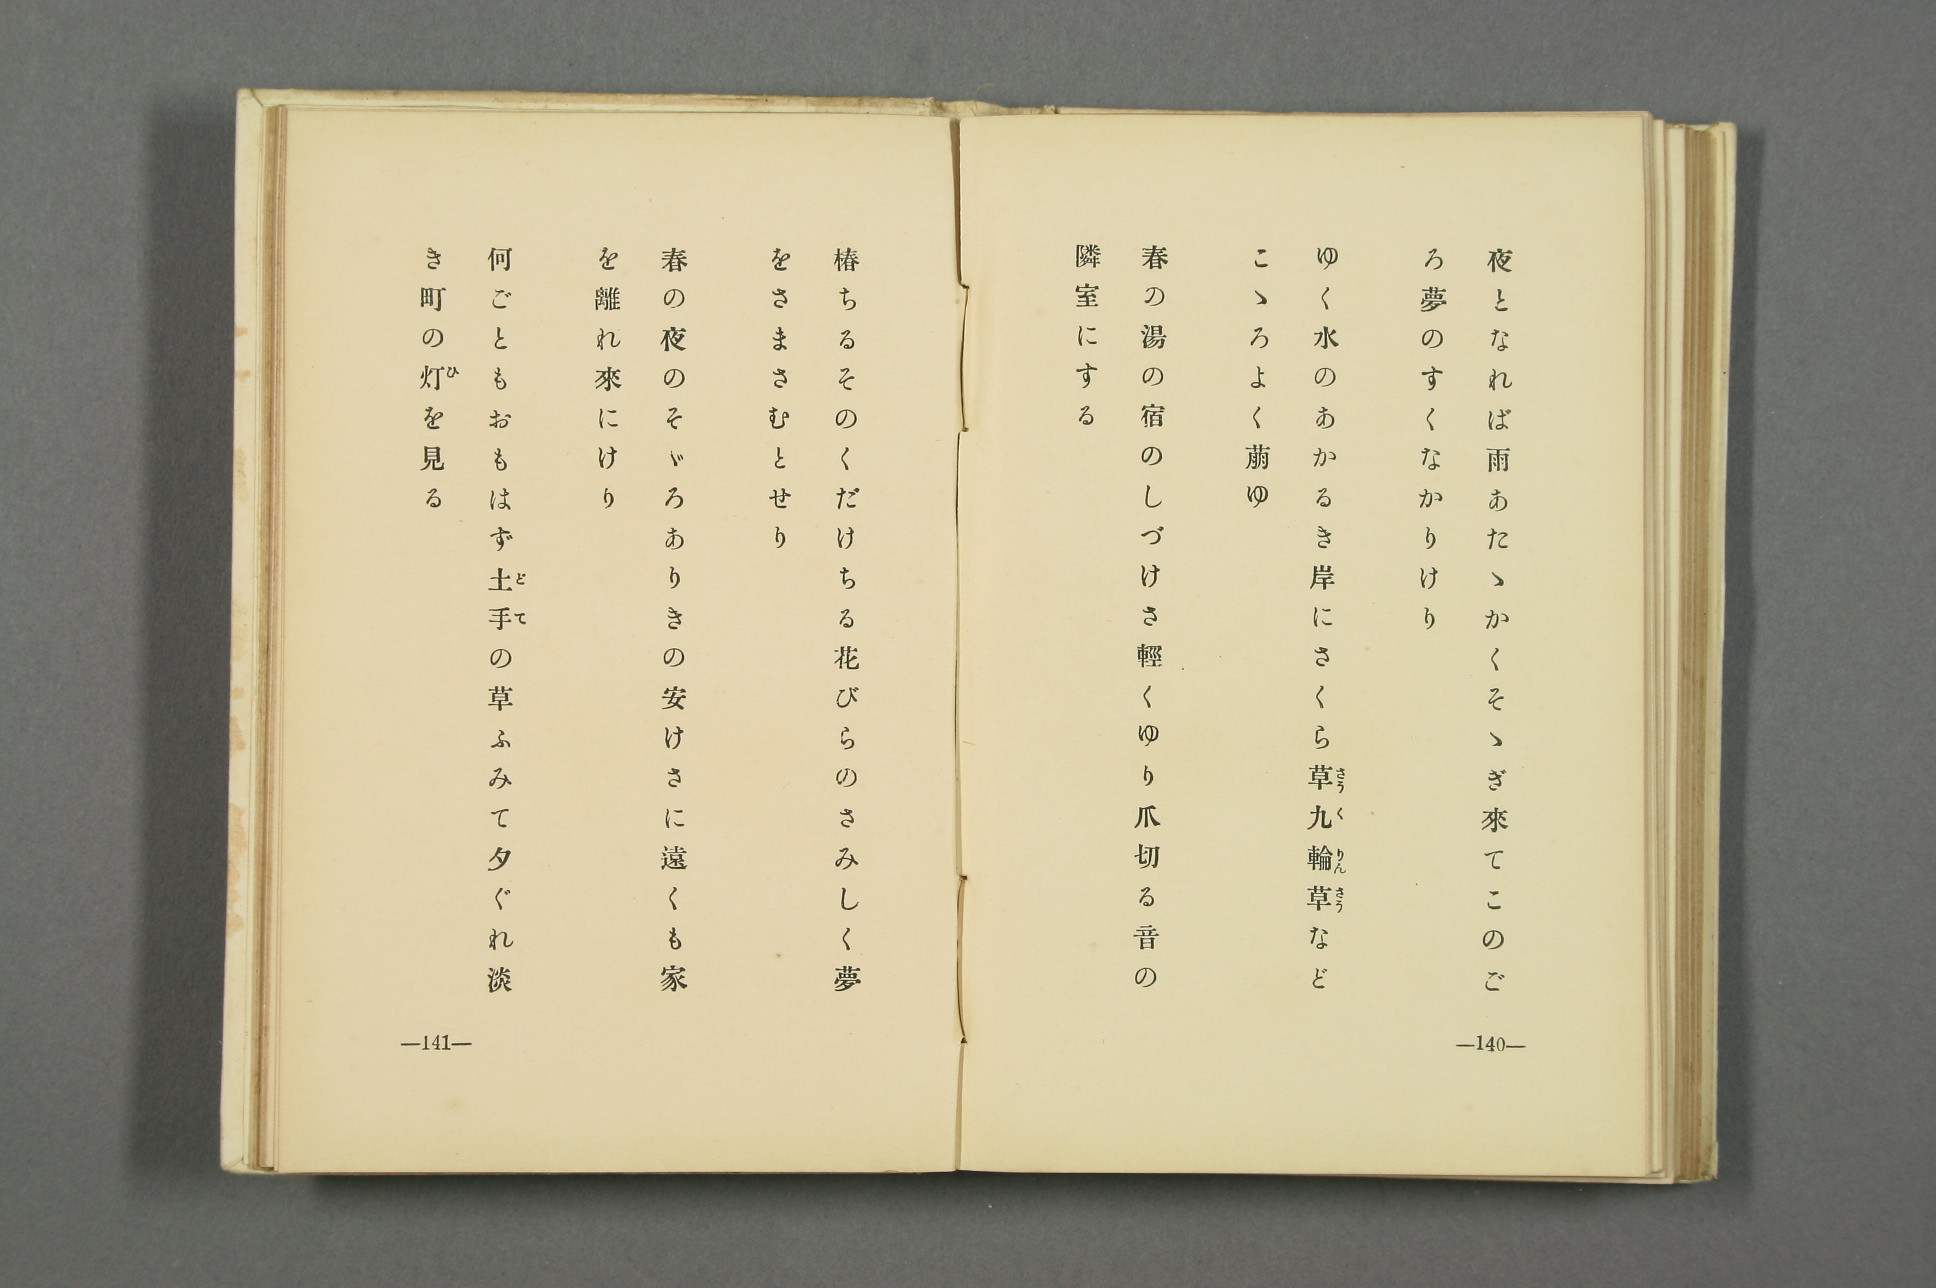 夜となれば雨あたゝかくそゝぎ來てこのご
ろ夢のすくなかりけり
ゆく水のあかるき岸にさくら草九輪草など
こゝろよく萠ゆ
春の湯の宿のしづけさ輕くゆり爪切る音の
隣室にする
—140—
椿ちるそのくだけちる花びらのさみしく夢
をさまさむとせり
春の夜のそゞろありきの安けさに遠くも家
を離れ來にけり
何ごともおもはず土手の草ふみて夕ぐれ淡
き町の灯を見る
—141—